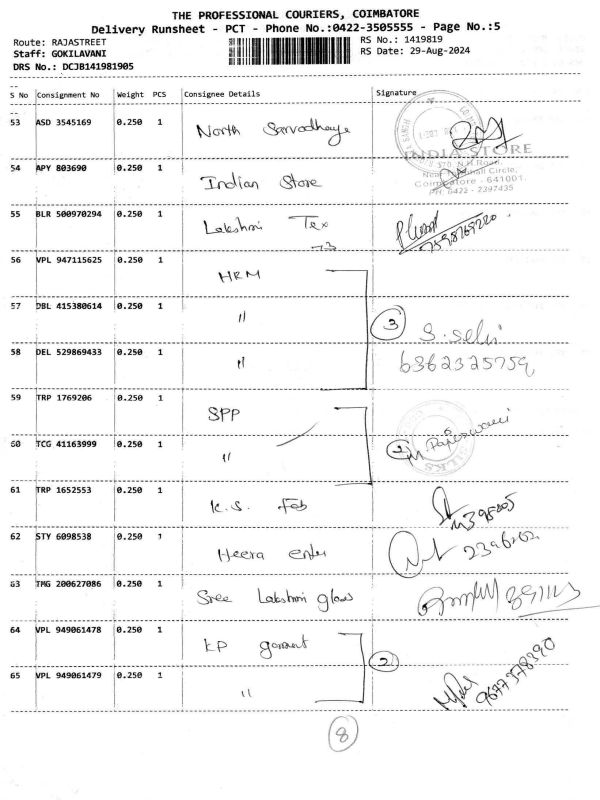 THE PROFESSIONAL COURIERS, COIMBATORE
Delivery Runsheet - PCT - Phone No.:0422-3505555 - Page No.:5
Route: RAJASTREET RS No.: 1419819
Staff: GOKILAVANI RS Date: 29-Aug-2024
DRS No.: DCJB141981905
S No Consignment No Weight PCS Consignee Details Signature
53 ASD 3545169 0.250 1 North
INDIA STORE
54 APY 803690 0.250 1 Indian Store
Coimbatore - 641001.
PH: 0422 - 2397435
55 BLR 500970294 0.250 1 Lakshmi Tex
56 VPL 947115625 0.250 1 HRM
57 DBL 415380614 0.250 1 "
3 S. Selvi
58 DEL 529869433 0.250 1 " 6362325759
59 TRP 1769206 0.250 1 SPP
60 TCG 41163999 0.250 1 " 2 M. Rajeswari
SILKS
61 TRP 1652553 0.250 1 K.S. Fab
62 STY 6098538 0.250 1 Heera enter
63 TMG 200627086 0.250 1 Sree Lakshmi glass
64 VPL 949061478 0.250 1 KP garment
2
65 VPL 949061479 0.250 1 " 9677378390
8